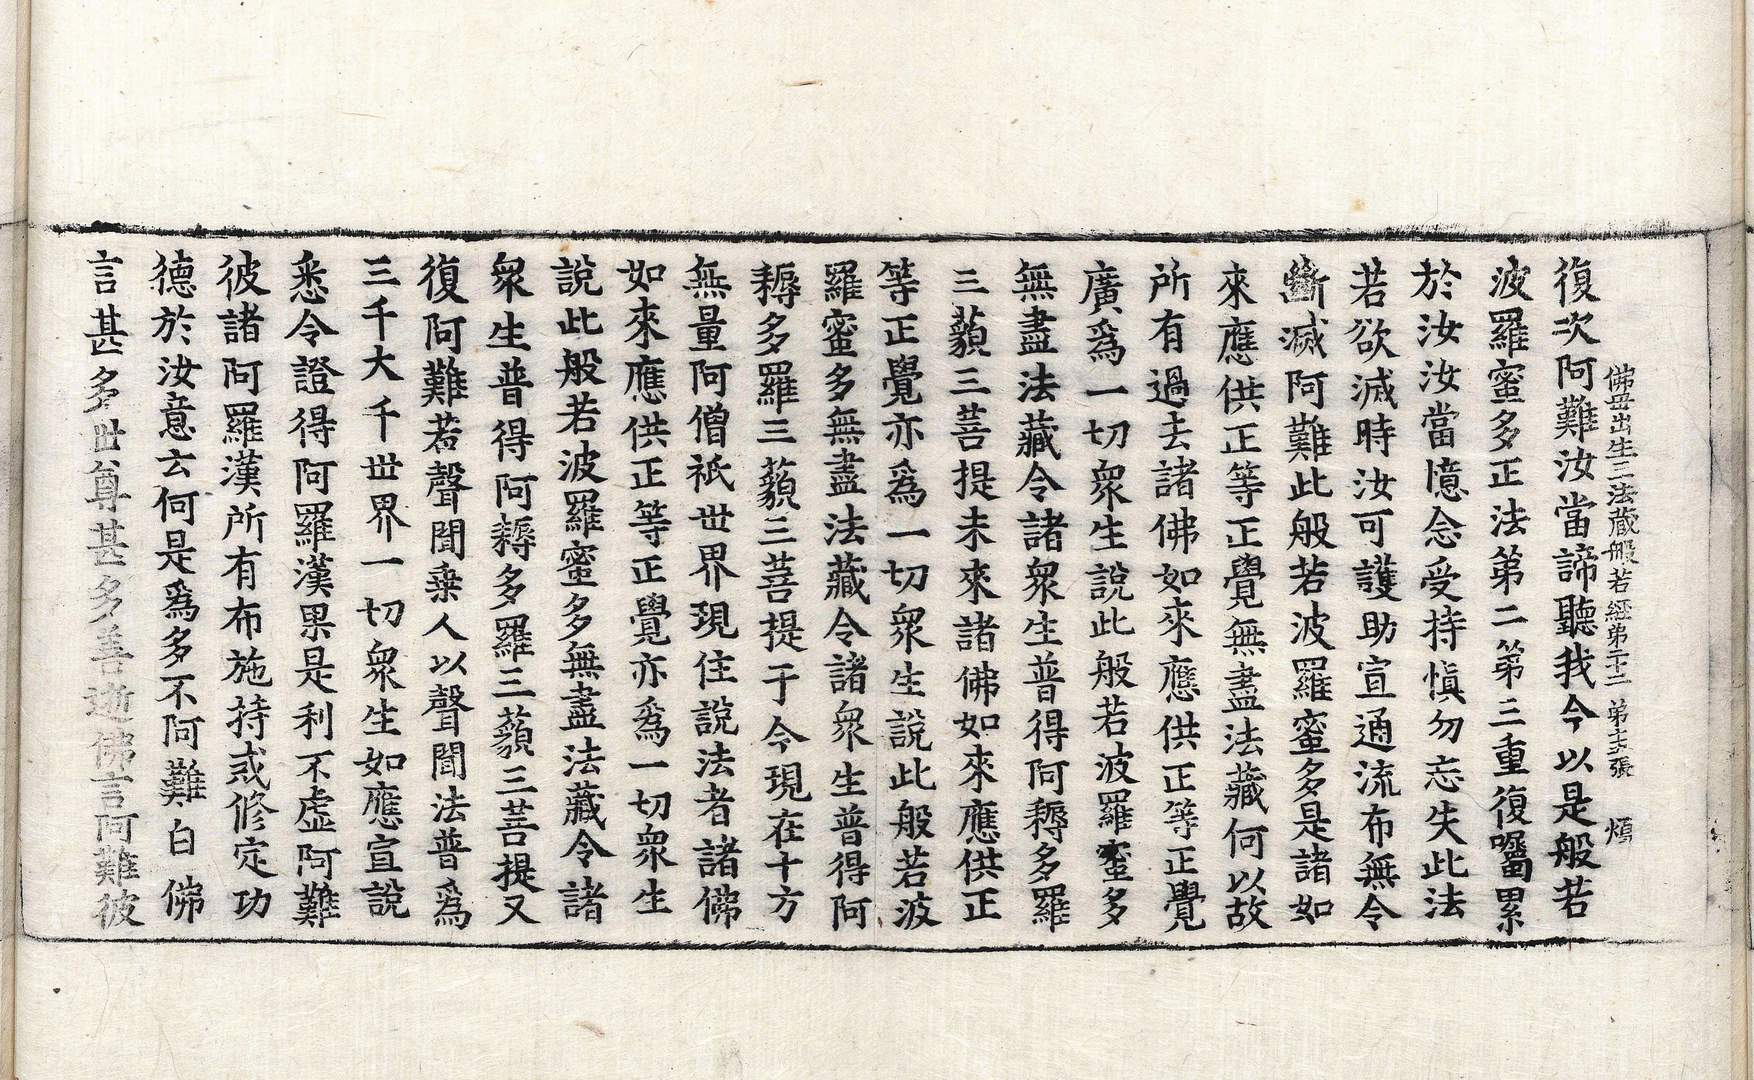 佛母出生三法藏般若經第二十二 第十六張 煩
復次阿難汝當諦聽我今以是般若
波羅蜜多正法第二第三重復囑累
於汝汝當憶念受持愼勿忘失此法
若欲滅時汝可護助宣通流布無令
斷滅阿難此般若波羅蜜多是諸如
來應供正等正覺無盡法藏何以故
所有過去諸佛如來應供正等正覺
廣爲一切衆生說此般若波羅蜜多
無盡法藏令諸衆生普得阿耨多羅
三藐三菩提未來諸佛如來應供正
等正覺亦爲一切衆生說此般若波
羅蜜多無盡法藏令諸衆生普得阿
耨多羅三藐三菩提于今現在十方
無量阿僧祇世界現住說法者諸佛
如來應供正等正覺亦爲一切衆生
說此般若波羅蜜多無盡法藏令諸
衆生普得阿耨多羅三藐三菩提又
復阿難若聲聞乗人以聲聞法普爲
三千大千世界一切衆生如應宣說
悉令證得阿羅漢果是利不虛阿難
彼諸阿羅漢所有布施持戒修定功
德於汝意云何是爲多不阿難白佛
言甚多世尊甚多善逝佛言阿難彼